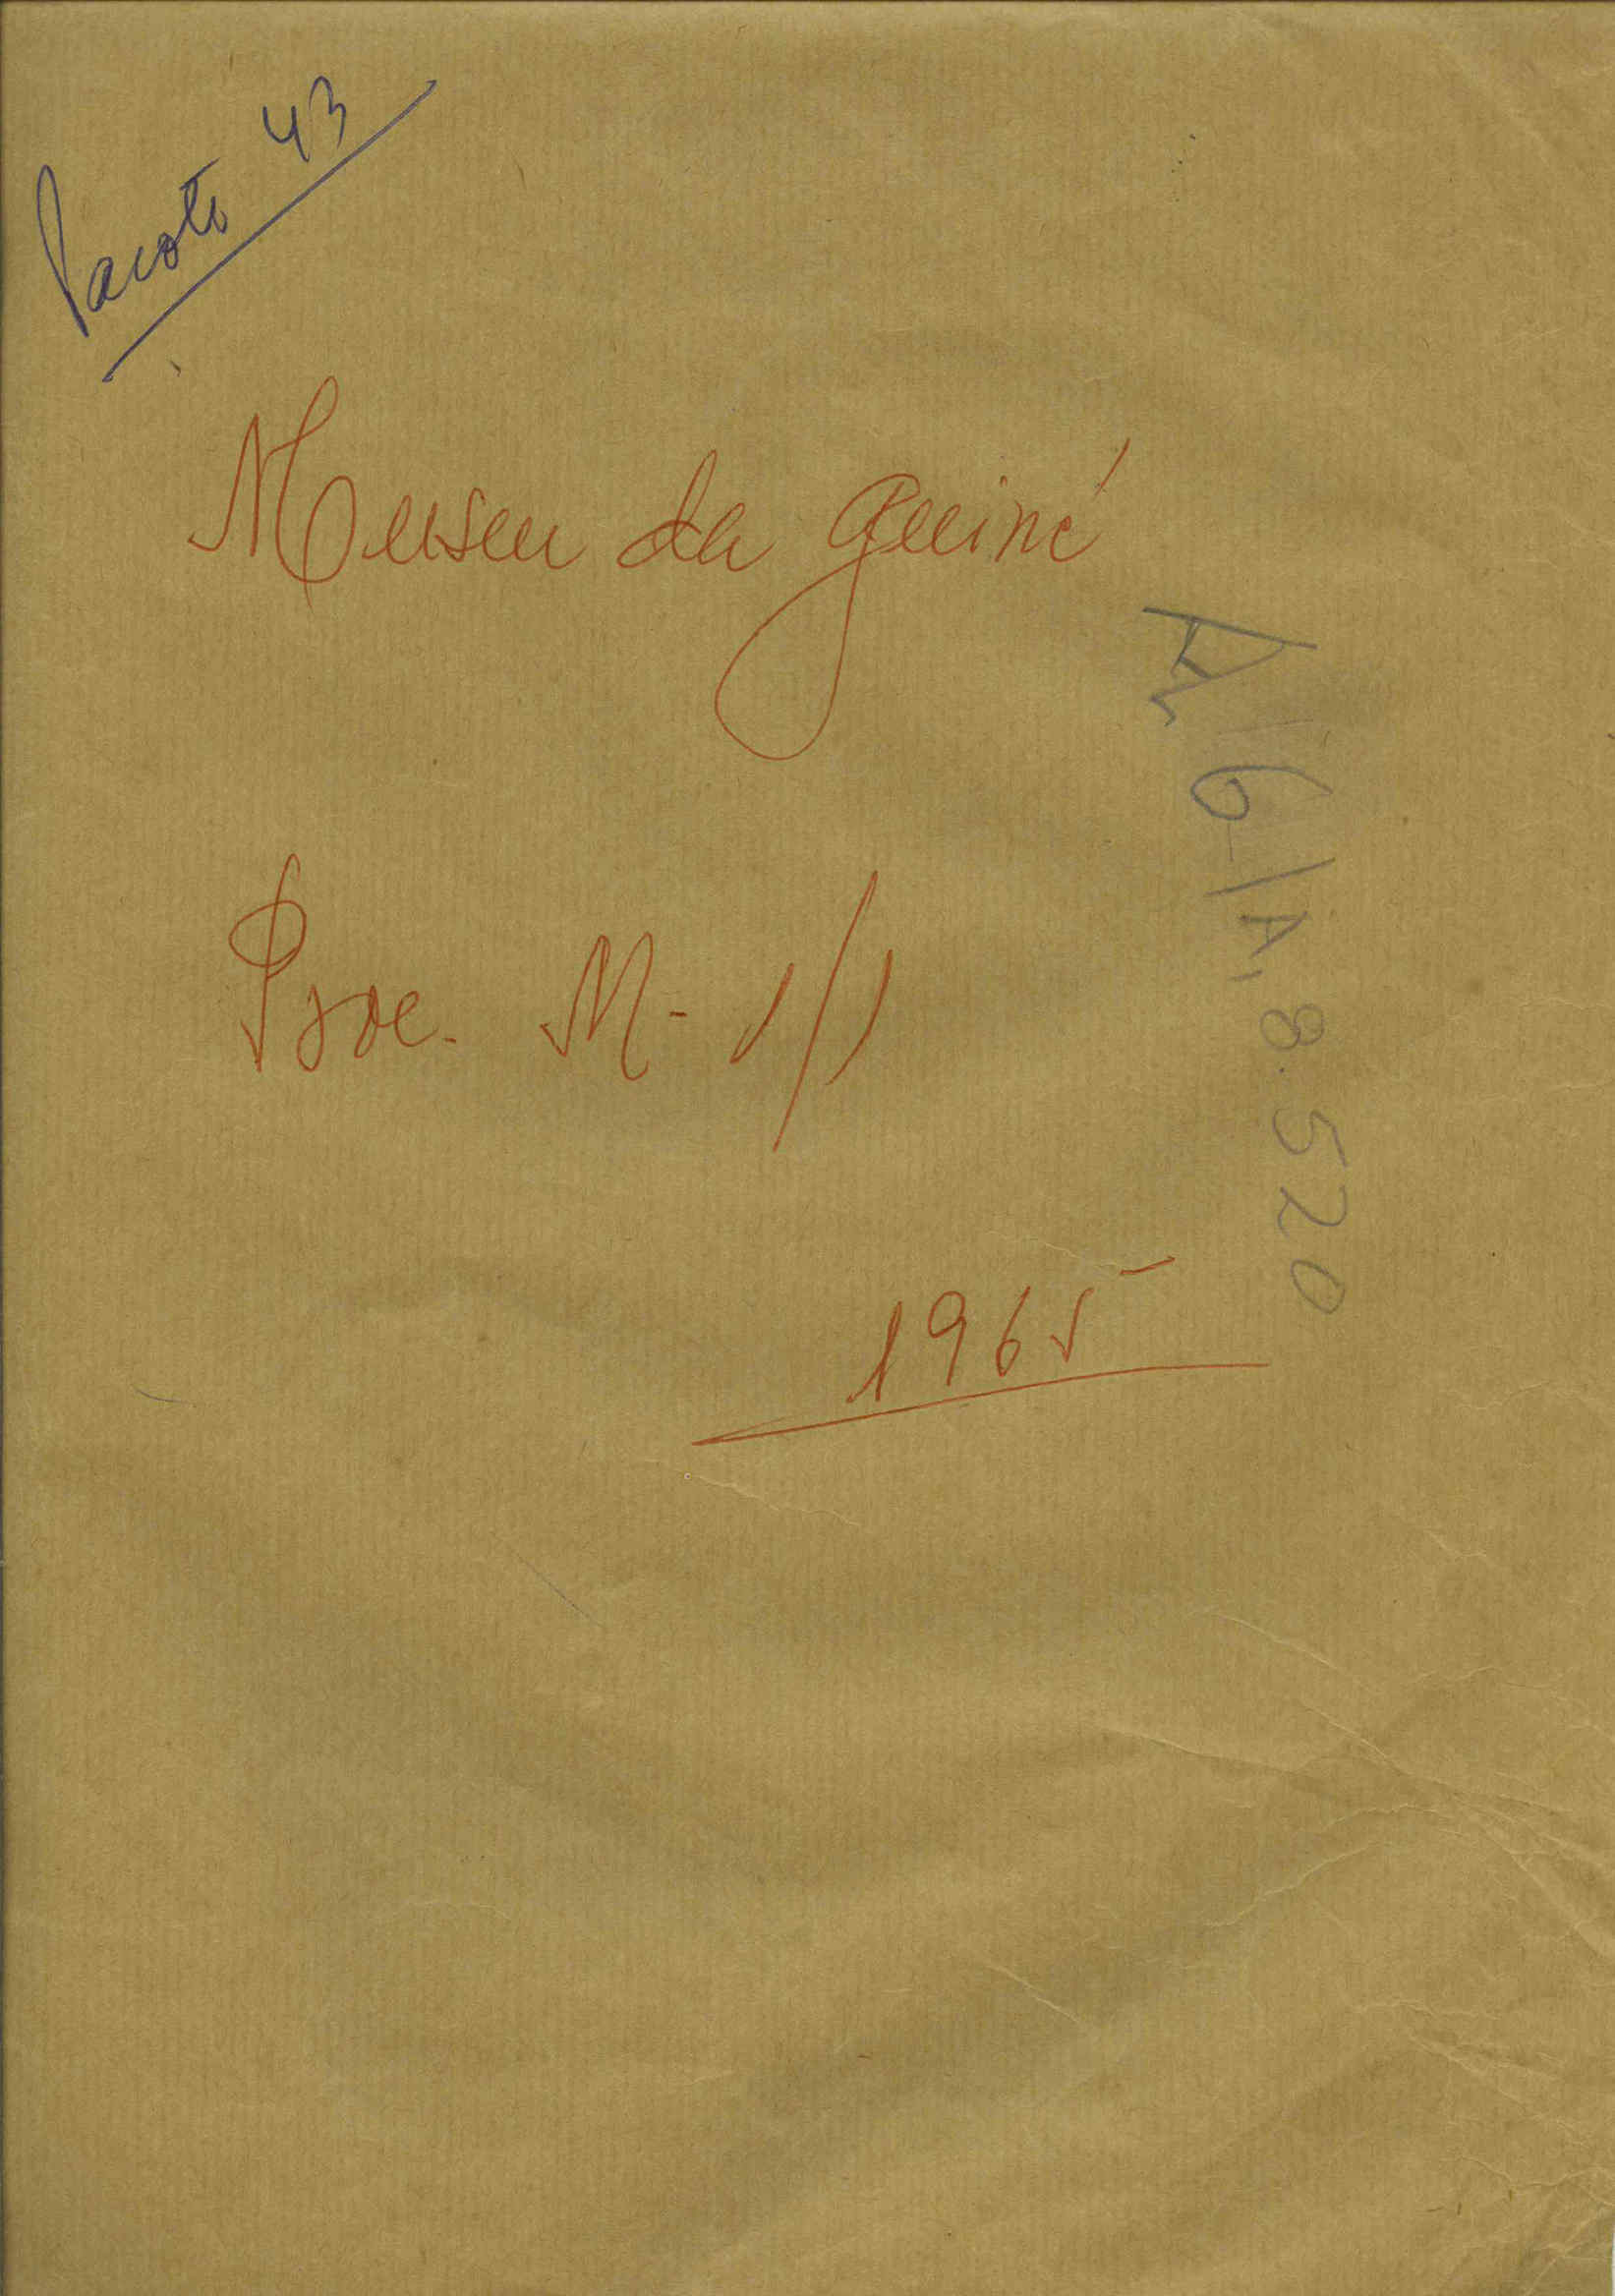 Pacote 43
Museu da Guiné
A6/A,8.520
Proc. M-1/1
1965